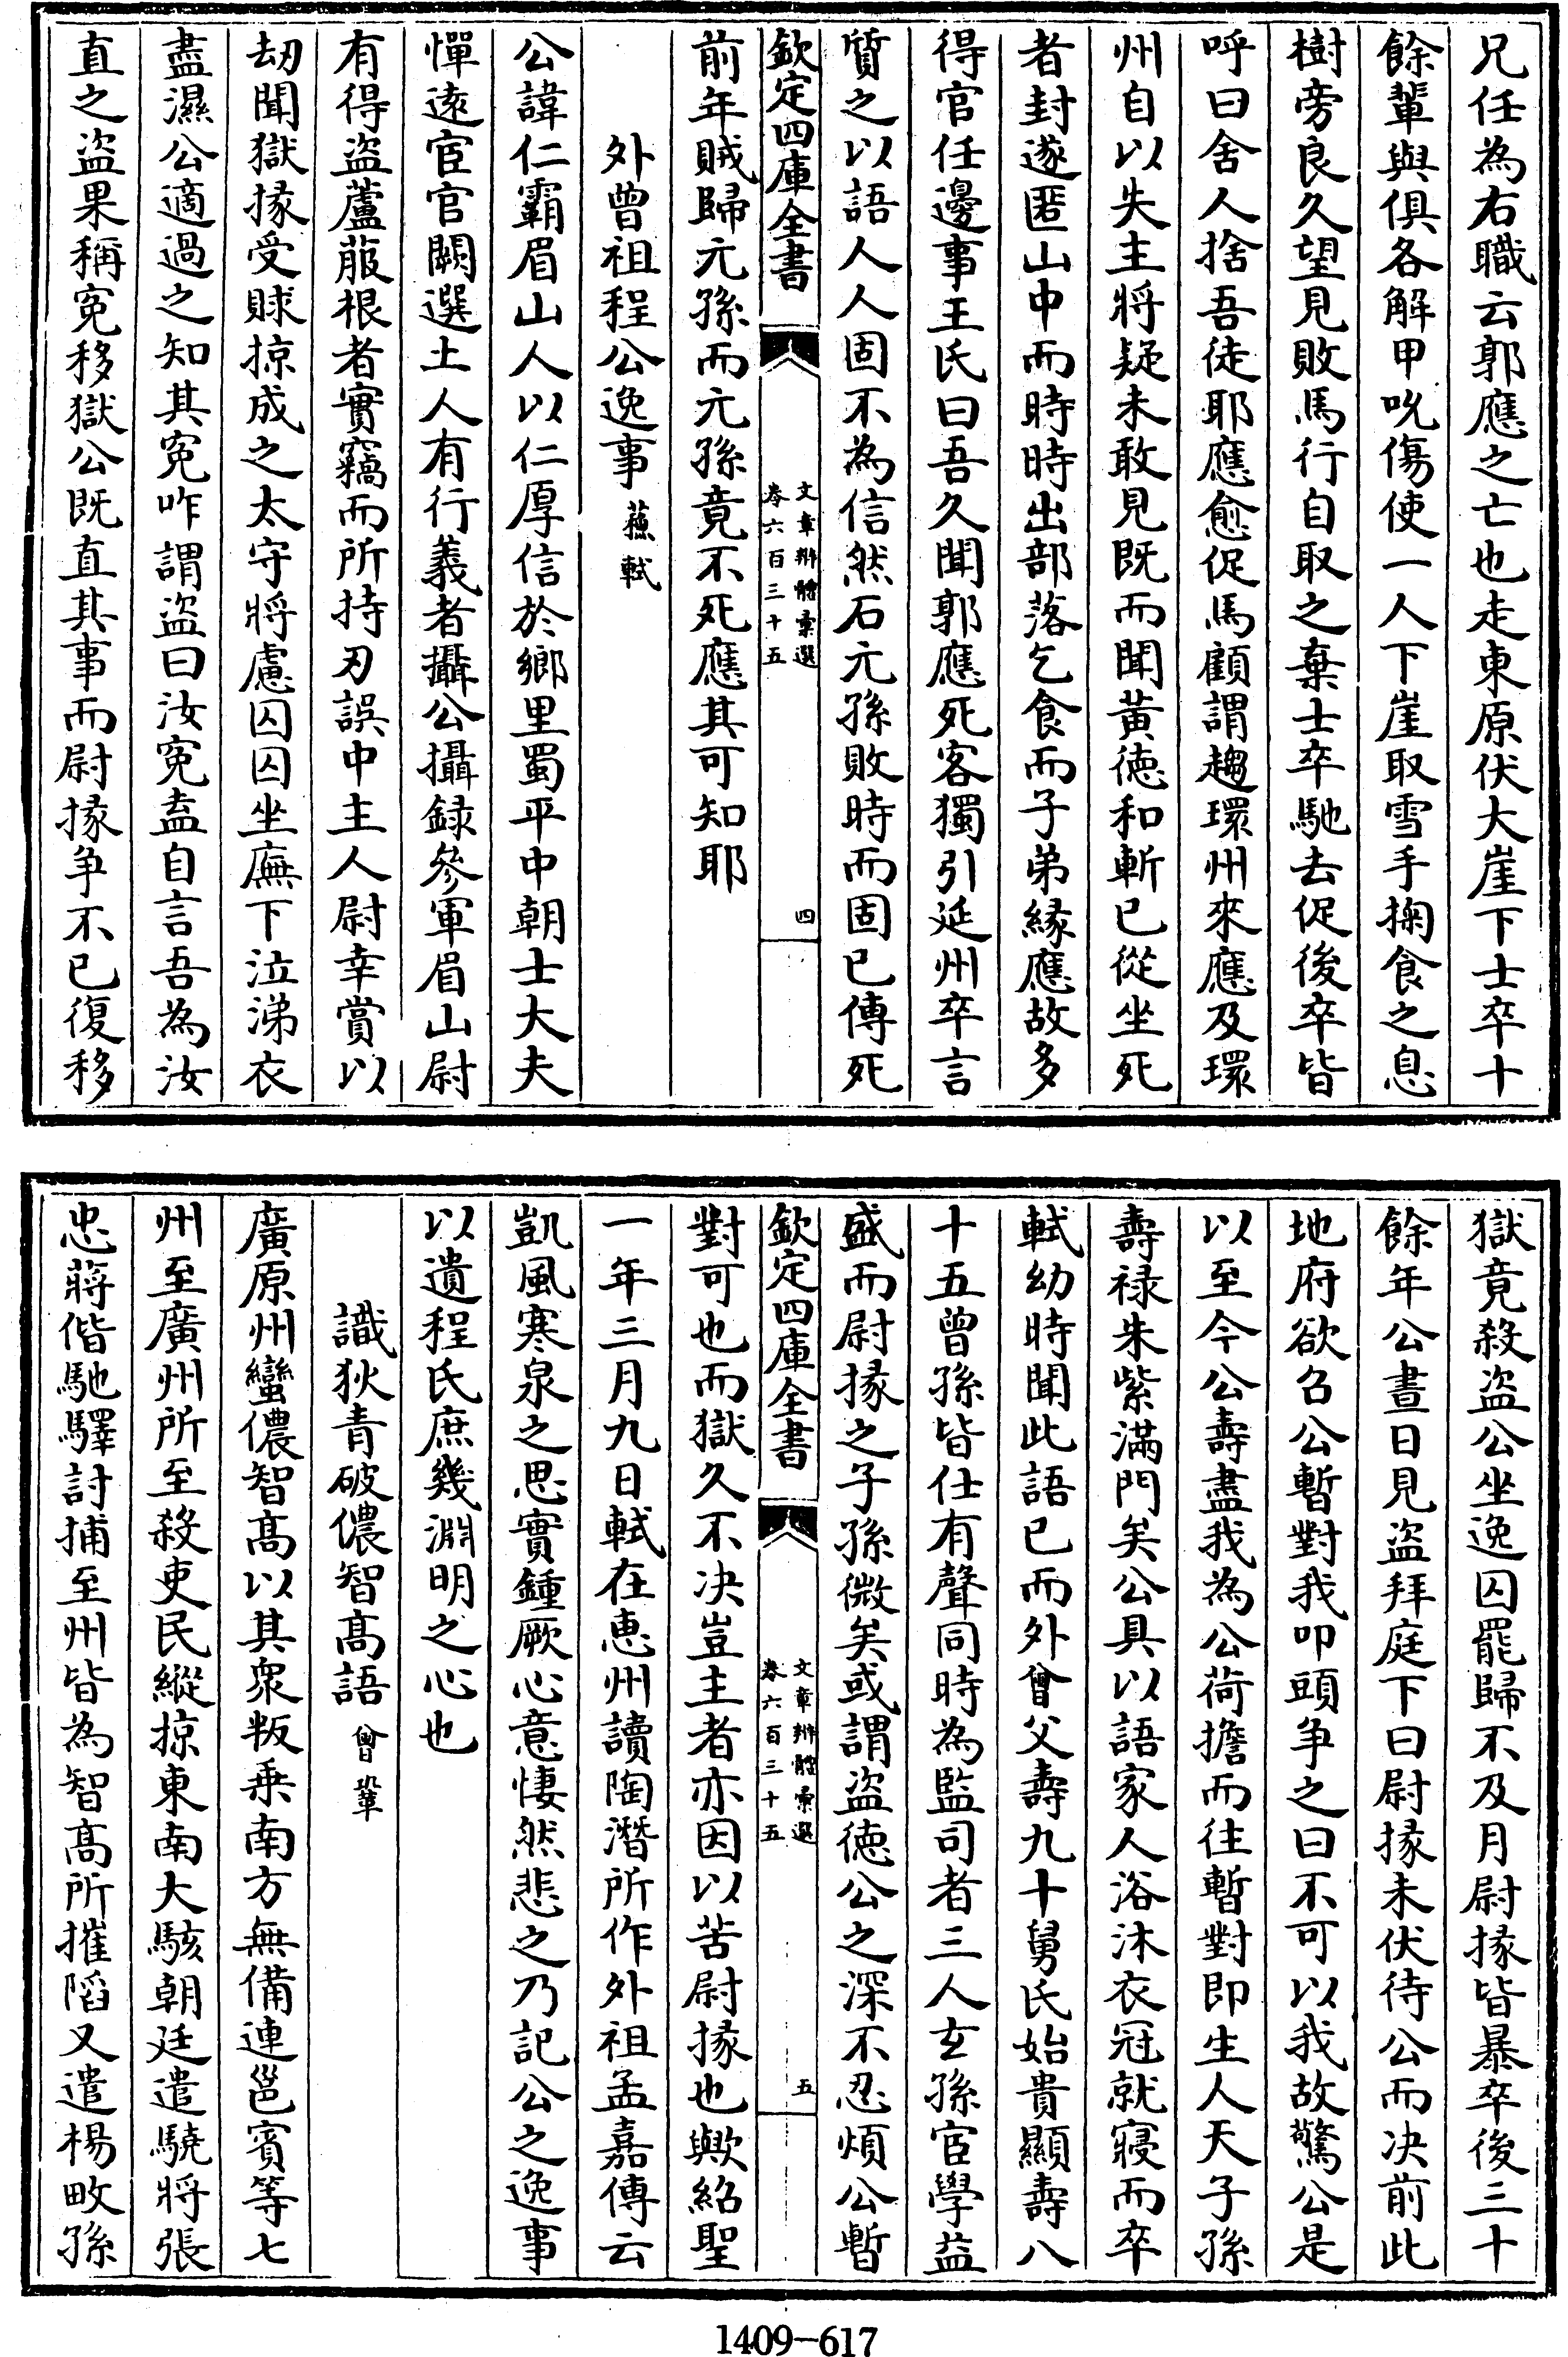 兄任為右職云郭應之亡也走東原伏大崖下士卒十
餘輩與俱各解甲吮傷使一人下崖取雪手掬食之息
樹旁良久望見敗馬行自取之棄士卒馳去促後卒皆
呼曰舍人捨吾徒耶應愈促馬顧謂趨環州來應及環
州自以失主將疑未敢見既而聞黃徳和斬已從坐死
者封遂匿山中而時時出部落乞食而子弟縁應故多
得官任邊事王氏曰吾久聞郭應死客獨引延州卒言
質之以語人人固不為信然石元孫敗時而固已傳死
欽定四庫全書
文章辨體彙選
卷六百三十五
四
前年賊歸元孫而元孫竟不死應其可知耶
外曾祖程公逸事 蘇軾
公諱仁霸眉山人以仁厚信於鄉里蜀平中朝士大夫
憚逺宦官闕選土人有行義者攝公攝録參軍眉山尉
有得盗蘆菔根者實竊而所持刃誤中主人尉幸賞以
劫聞獄掾受賕掠成之太守將慮囚囚坐廡下泣涕衣
盡濕公適過之知其寃咋謂盗曰汝寃盍自言吾為汝
直之盗果稱寃移獄公既直其事而尉掾争不已復移
獄竟殺盗公坐逸囚罷歸不及月尉掾皆暴卒後三十
餘年公晝日見盗拜庭下曰尉掾未伏待公而决前此
地府欲召公暫對我叩頭争之曰不可以我故驚公是
以至今公壽盡我為公荷擔而往暫對即生人天子孫
壽禄朱紫滿門矣公具以語家人浴沐衣冠就寢而卒
軾幼時聞此語已而外曾父壽九十舅氏始貴顯壽八
十五曾孫皆仕有聲同時為監司者三人玄孫宦學益
盛而尉掾之子孫微矣或謂盗徳公之深不忍煩公暫
欽定四庫全書
文章辨體彙選
卷六百三十五
五
對可也而獄久不决豈主者亦因以苦尉掾也歟紹聖
一年三月九日軾在恵州讀陶潛所作外祖孟嘉傳云
凱風寒泉之思實鍾厥心意悽然悲之乃記公之逸事
以遺程氏庶幾淵明之心也
識狄青破儂智髙語 曾鞏
廣原州蠻儂智髙以其衆叛乗南方無備連邕賓等七
州至廣州所至殺吏民縱掠東南大駭朝廷遣驍將張
忠蔣偕馳驛討捕至州皆為智髙所摧䧟又遣楊畋孫
1409-617